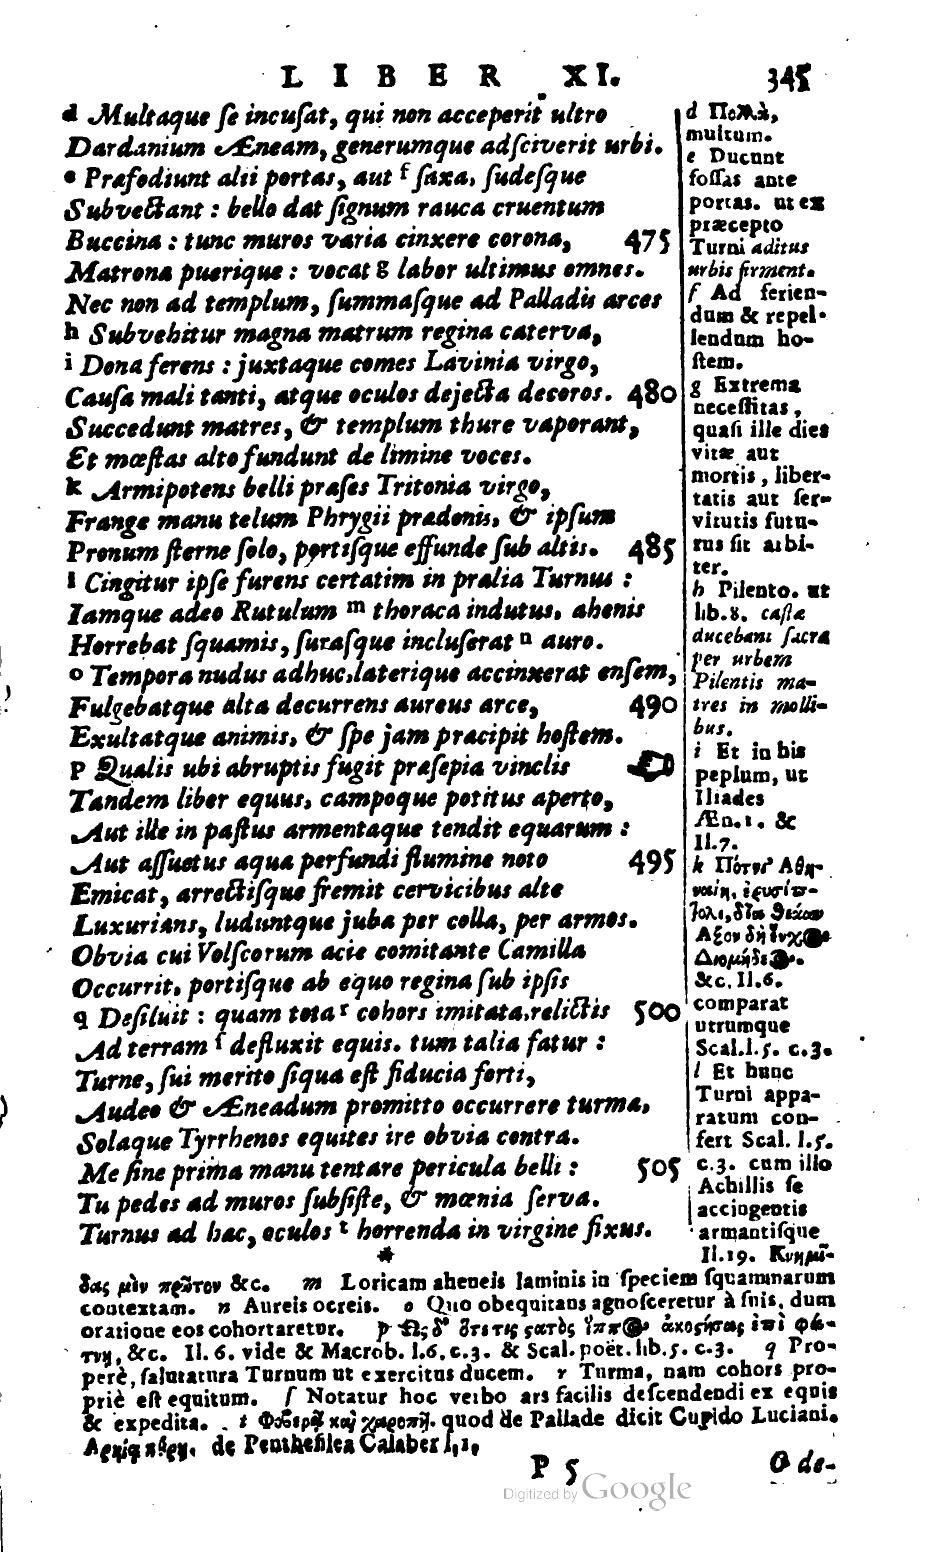 LIBER XI. 345
d Multaque ſe incuſat, qui non acceperit ultro
Dardanium Æneam, generumque adſciverit urbi.
e Præfodiunt alii portas, aut ſ ſaxa, ſudeſque
Subvectant : bello dat ſignum rauca cruentum
Buccina : tunc muros varia cinxere corona, 475
Matrona puerique : vocat g labor ultimus omnes.
Nec non ad templum, ſummaſque ad Palladis arces
h Subvehitur magna matrum regina caterva,
i Dona ferens : juxtaque comes Lavinia virgo,
Cauſa mali tanti, atque oculos dejecta decoros. 480
Succedunt matres, & templum thure vaporant,
Et mœſtas alto fundunt de limine voces.
k Armipotens belli præſes Tritonia virgo,
Frange manu telum Phrygii prædonis, & ipſum
Pronum ſterne ſolo, portiſque effunde ſub altis. 485
l Cingitur ipſe furens certatim in prælia Turnus :
Iamque adeo Rutulum m thoraca indutus, ahenis
Horrebat ſquamis, ſuraſque incluſerat n auro.
o Tempora nudus adhuc, laterique accinxerat enſem,
Fulgebatque alta decurrens aureus arce, 490
Exultatque animis, & ſpe jam præcipit hoſtem.
p Qualis ubi abruptis fugit præſepia vinclis
Tandem liber equus, campoque potitus aperto,
Aut ille in paſtus armentaque tendit equarum :
Aut aſſuetus aqua perfundi flumine noto 495
Emicat, arrectiſque fremit cervicibus alte
Luxurians, luduntque juba per colla, per armos.
Obvia cui Volſcorum acie comitante Camilla
Occurrit, portiſque ab equo regina ſub ipſis
q Deſiluit : quam tota r cohors imitata, relictis 500
Ad terram ſ defluxit equis. tum talia fatur :
Turne, ſui merito ſiqua eſt fiducia forti,
Audeo & Æneadum promitto occurrere turmæ,
Solaque Tyrrhenos equites ire obvia contra.
Me ſine prima manu tentare pericula belli : 505
Tu pedes ad muros ſubſiſte, & mœnia ſerva.
Turnus ad hæc, oculos t horrenda in virgine fixus.
d Πολλὰ,
multum.
e Ducunt
foſſas ante
portas. ut ex
præcepto
Turni aditus
urbis firment.
f Ad ferien-
dum & repel-
lendum ho-
ſtem.
g Extrema
neceſſitas,
quaſi ille dies
vitæ aut
mortis, liber-
tatis aut ſer-
vitutis futu-
rus ſit arbi-
ter.
h Pilento. ut
lib. 8. caſta
ducebant ſacra
per urbem
Pilentis ma-
tres in molli-
bus.
i Et in his
peplum, ut
Iliades
Æn. 1. &
Il. 7.
k Πότνι' Ἀθη-
ναίη, ἐρυσίπ-
τολι, δῖα θεάων
Ἆξον δὴ ἔγχος
Διομήδεος.
&c. Il. 6.
comparat
utrumque
Scal. l. 5. c. 3.
l Et hunc
Turni appa-
ratum con-
fert Scal. l. 5.
c. 3. cum illo
Achillis ſe
accingentis
armantiſque
Il. 19. Κνημῖ-
δας μὲν πρῶτον &c. m Loricam aheneis laminis in ſpeciem ſquammarum
contextam. n Aureis ocreis. o Quo obequitans agnoſceretur à ſuis, dum
oratione eos cohortaretur. p Ὡς δ' ὅτε τις ςατὸς ἵππος ἀκοςήσας ἐπὶ φά-
τνῃ, &c. Il. 6. vide & Macrob. l. 6. c. 3. & Scal. poët. lib. 5. c. 3. q Pro-
perè, ſalutatura Turnum ut exercitus ducem. r Turma, nam cohors pro-
priè eſt equitum. ſ Notatur hoc verbo ars facilis deſcendendi ex equis
& expedita. t Φοβερὰ καὶ χαροπὴ. quod de Pallade dicit Cupido Luciani.
de Pentheſilea Calaber l. 1.
P 5 O de-
Digitized by Google